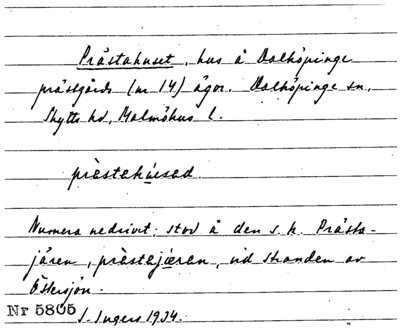 Prästahuset, hus å Dalköpinge
prästgårds (nr 14) ägor. Dalköpinge sn,
Skytts hd, Malmöhus l.
prèstahúsəd.
Numera nedrivet; stod å den s.k. Prästa-
jären, prèstajæ̀ren, vid stranden av
Östersjön.
Nr 5805 I. Ingers 1934.